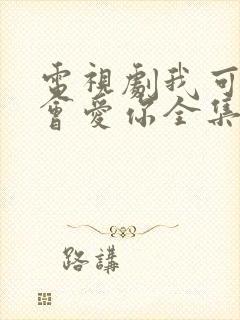 電視劇我可
會愛你全集
路講